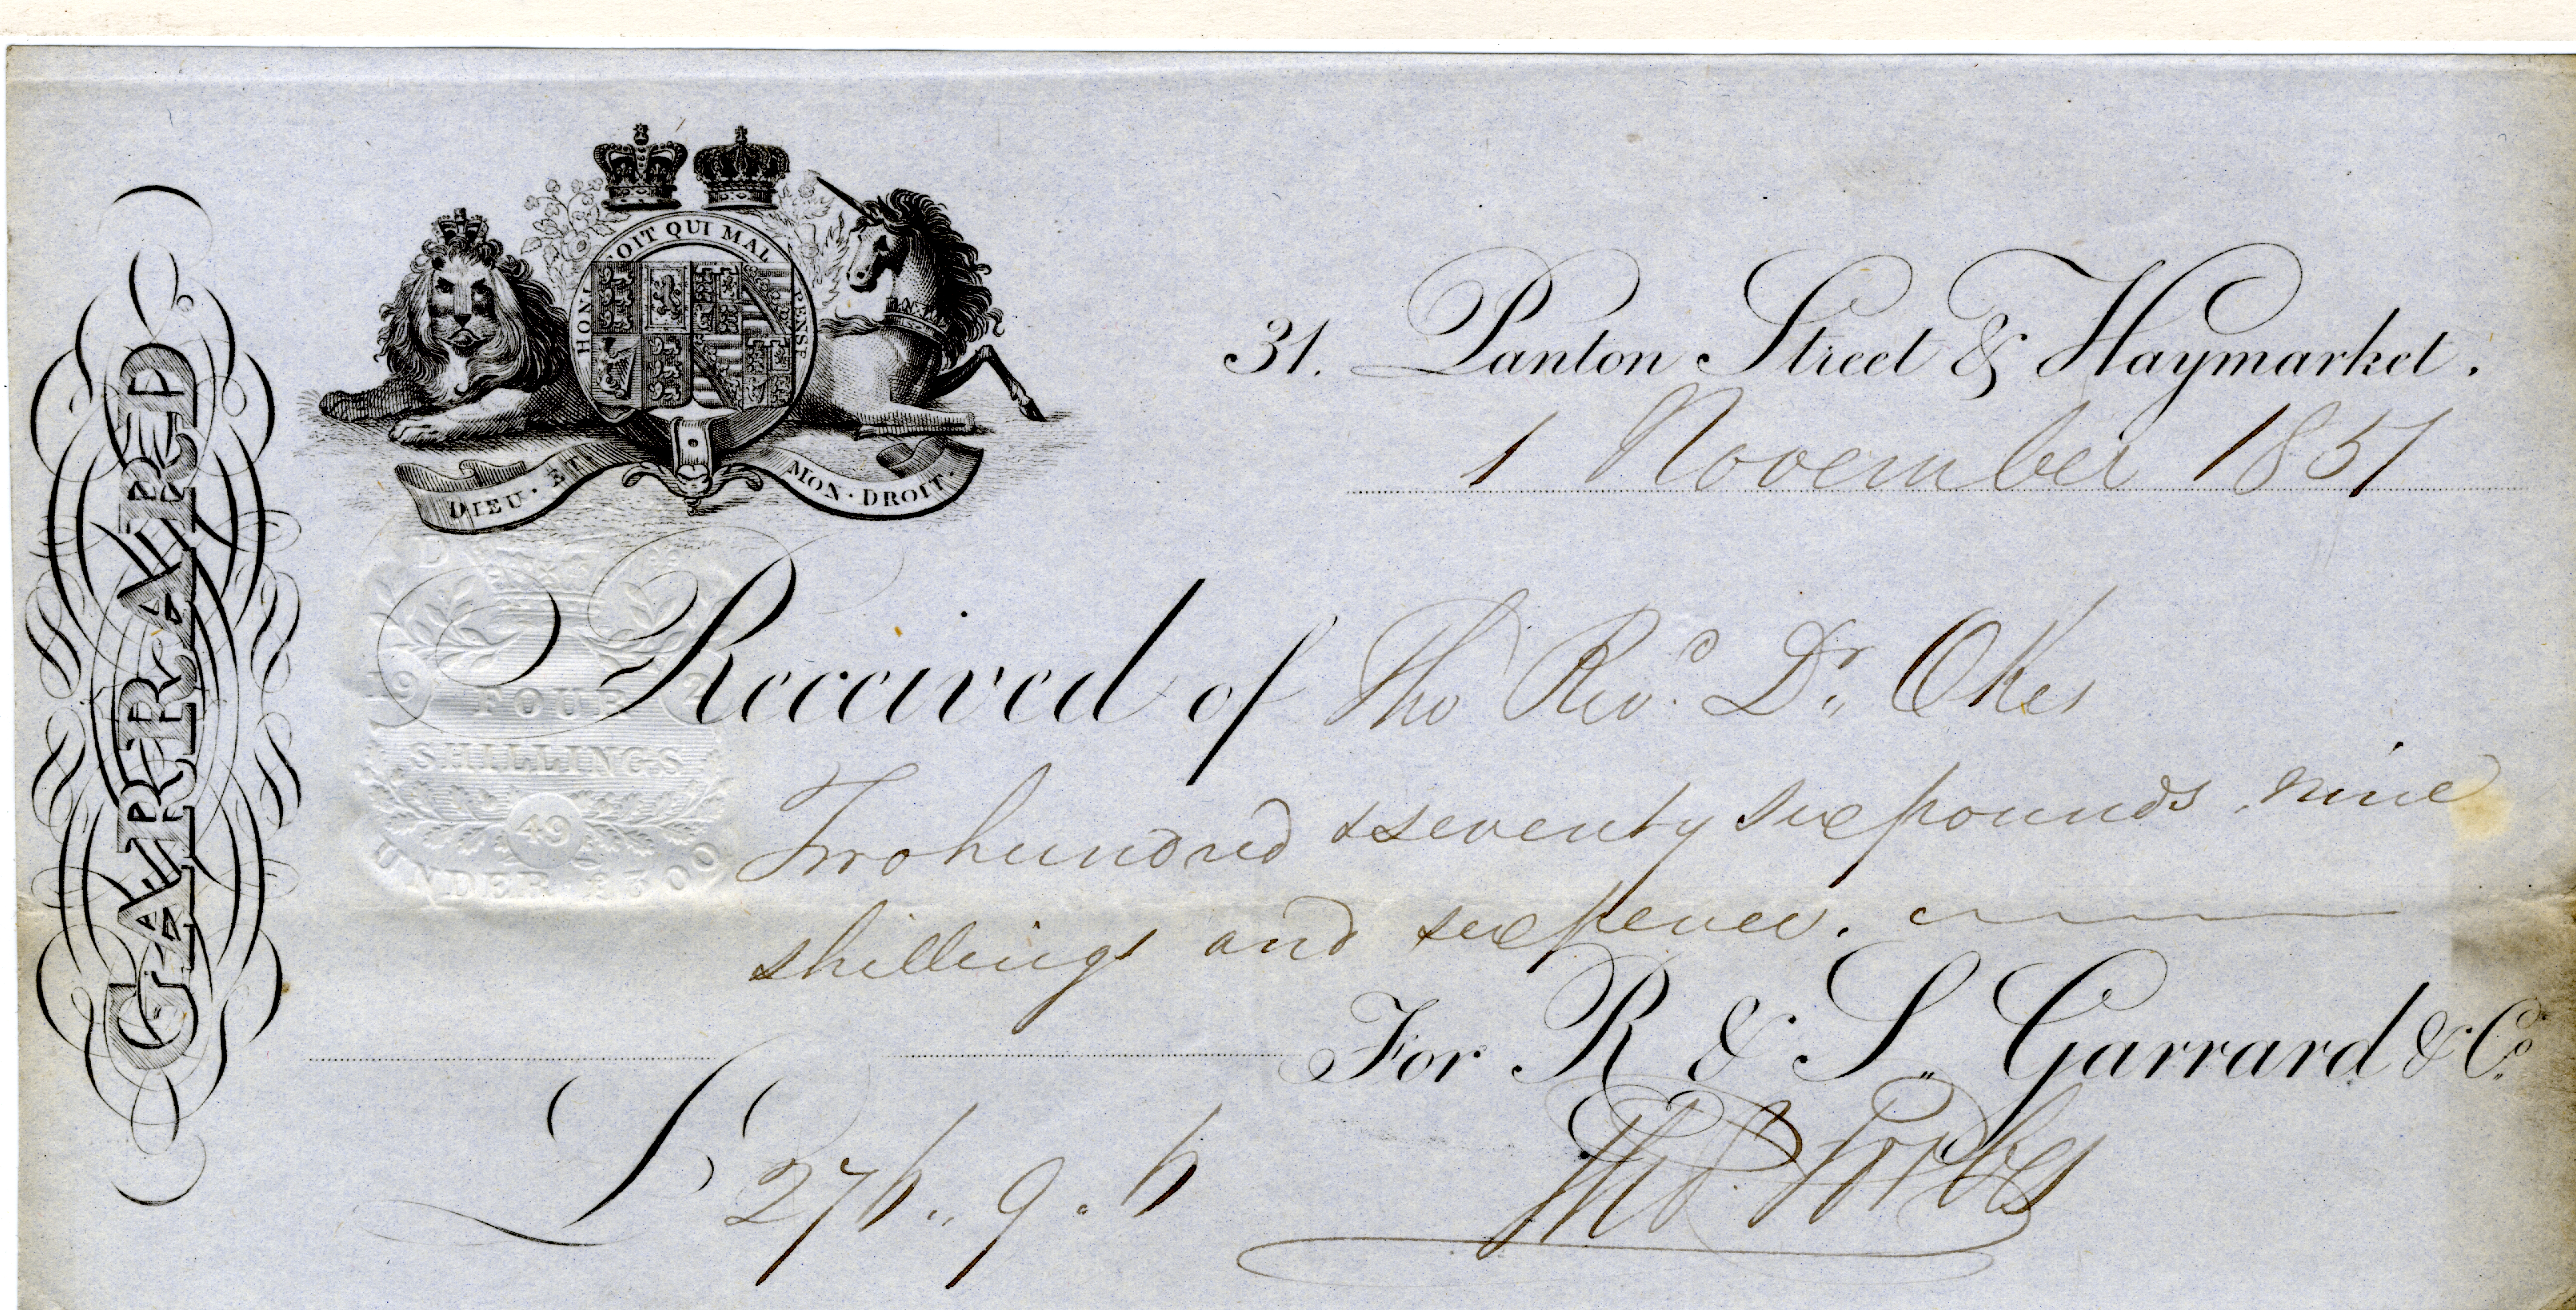 GARRARD
HONI SOIT QUI MAL Y PENSE
DIEU · ET MON · DROIT.
31. Panton Street & Haymarket.
1 November 1851
FOUR
SHILLINGS
49
UNDER £300
Received of The Revd. Dr. Okes
Two hundred & seventy six pounds, nine
shillings and sixpence.
For R & S. Garrard & Co.
£ 276 .. 9 . 6
Thos. Forbes